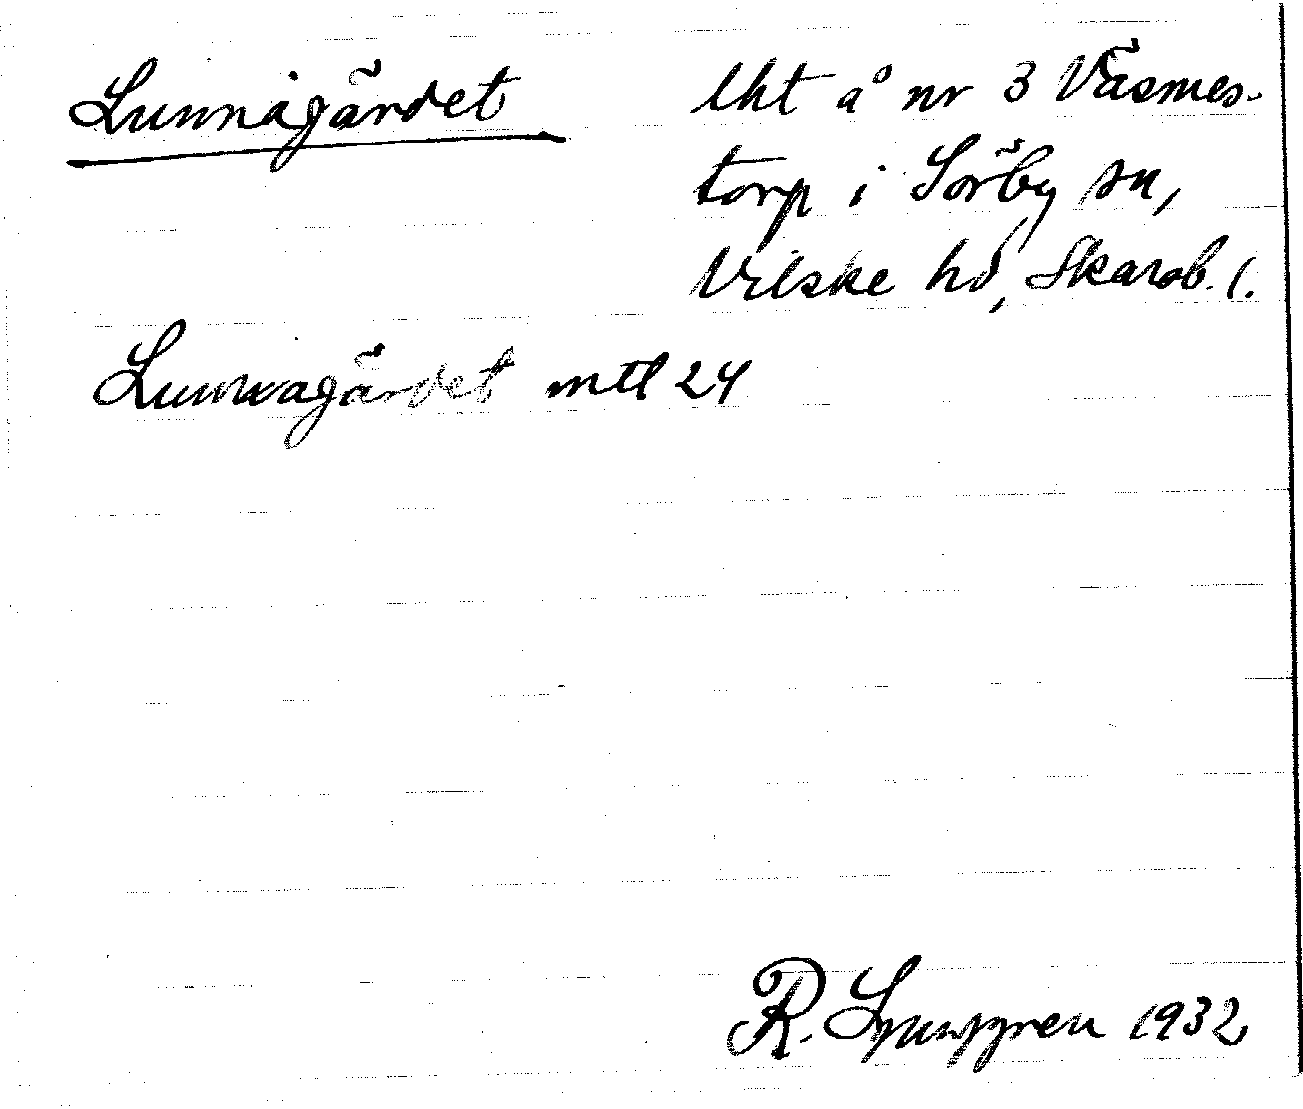 Lunnagärdet
Lht å nr 3 Väsmes-
torp i Sörby sn,
Vilske hd, Skarab. l.
Lunnagärdet mtl 24
R. Ljunggren 1932